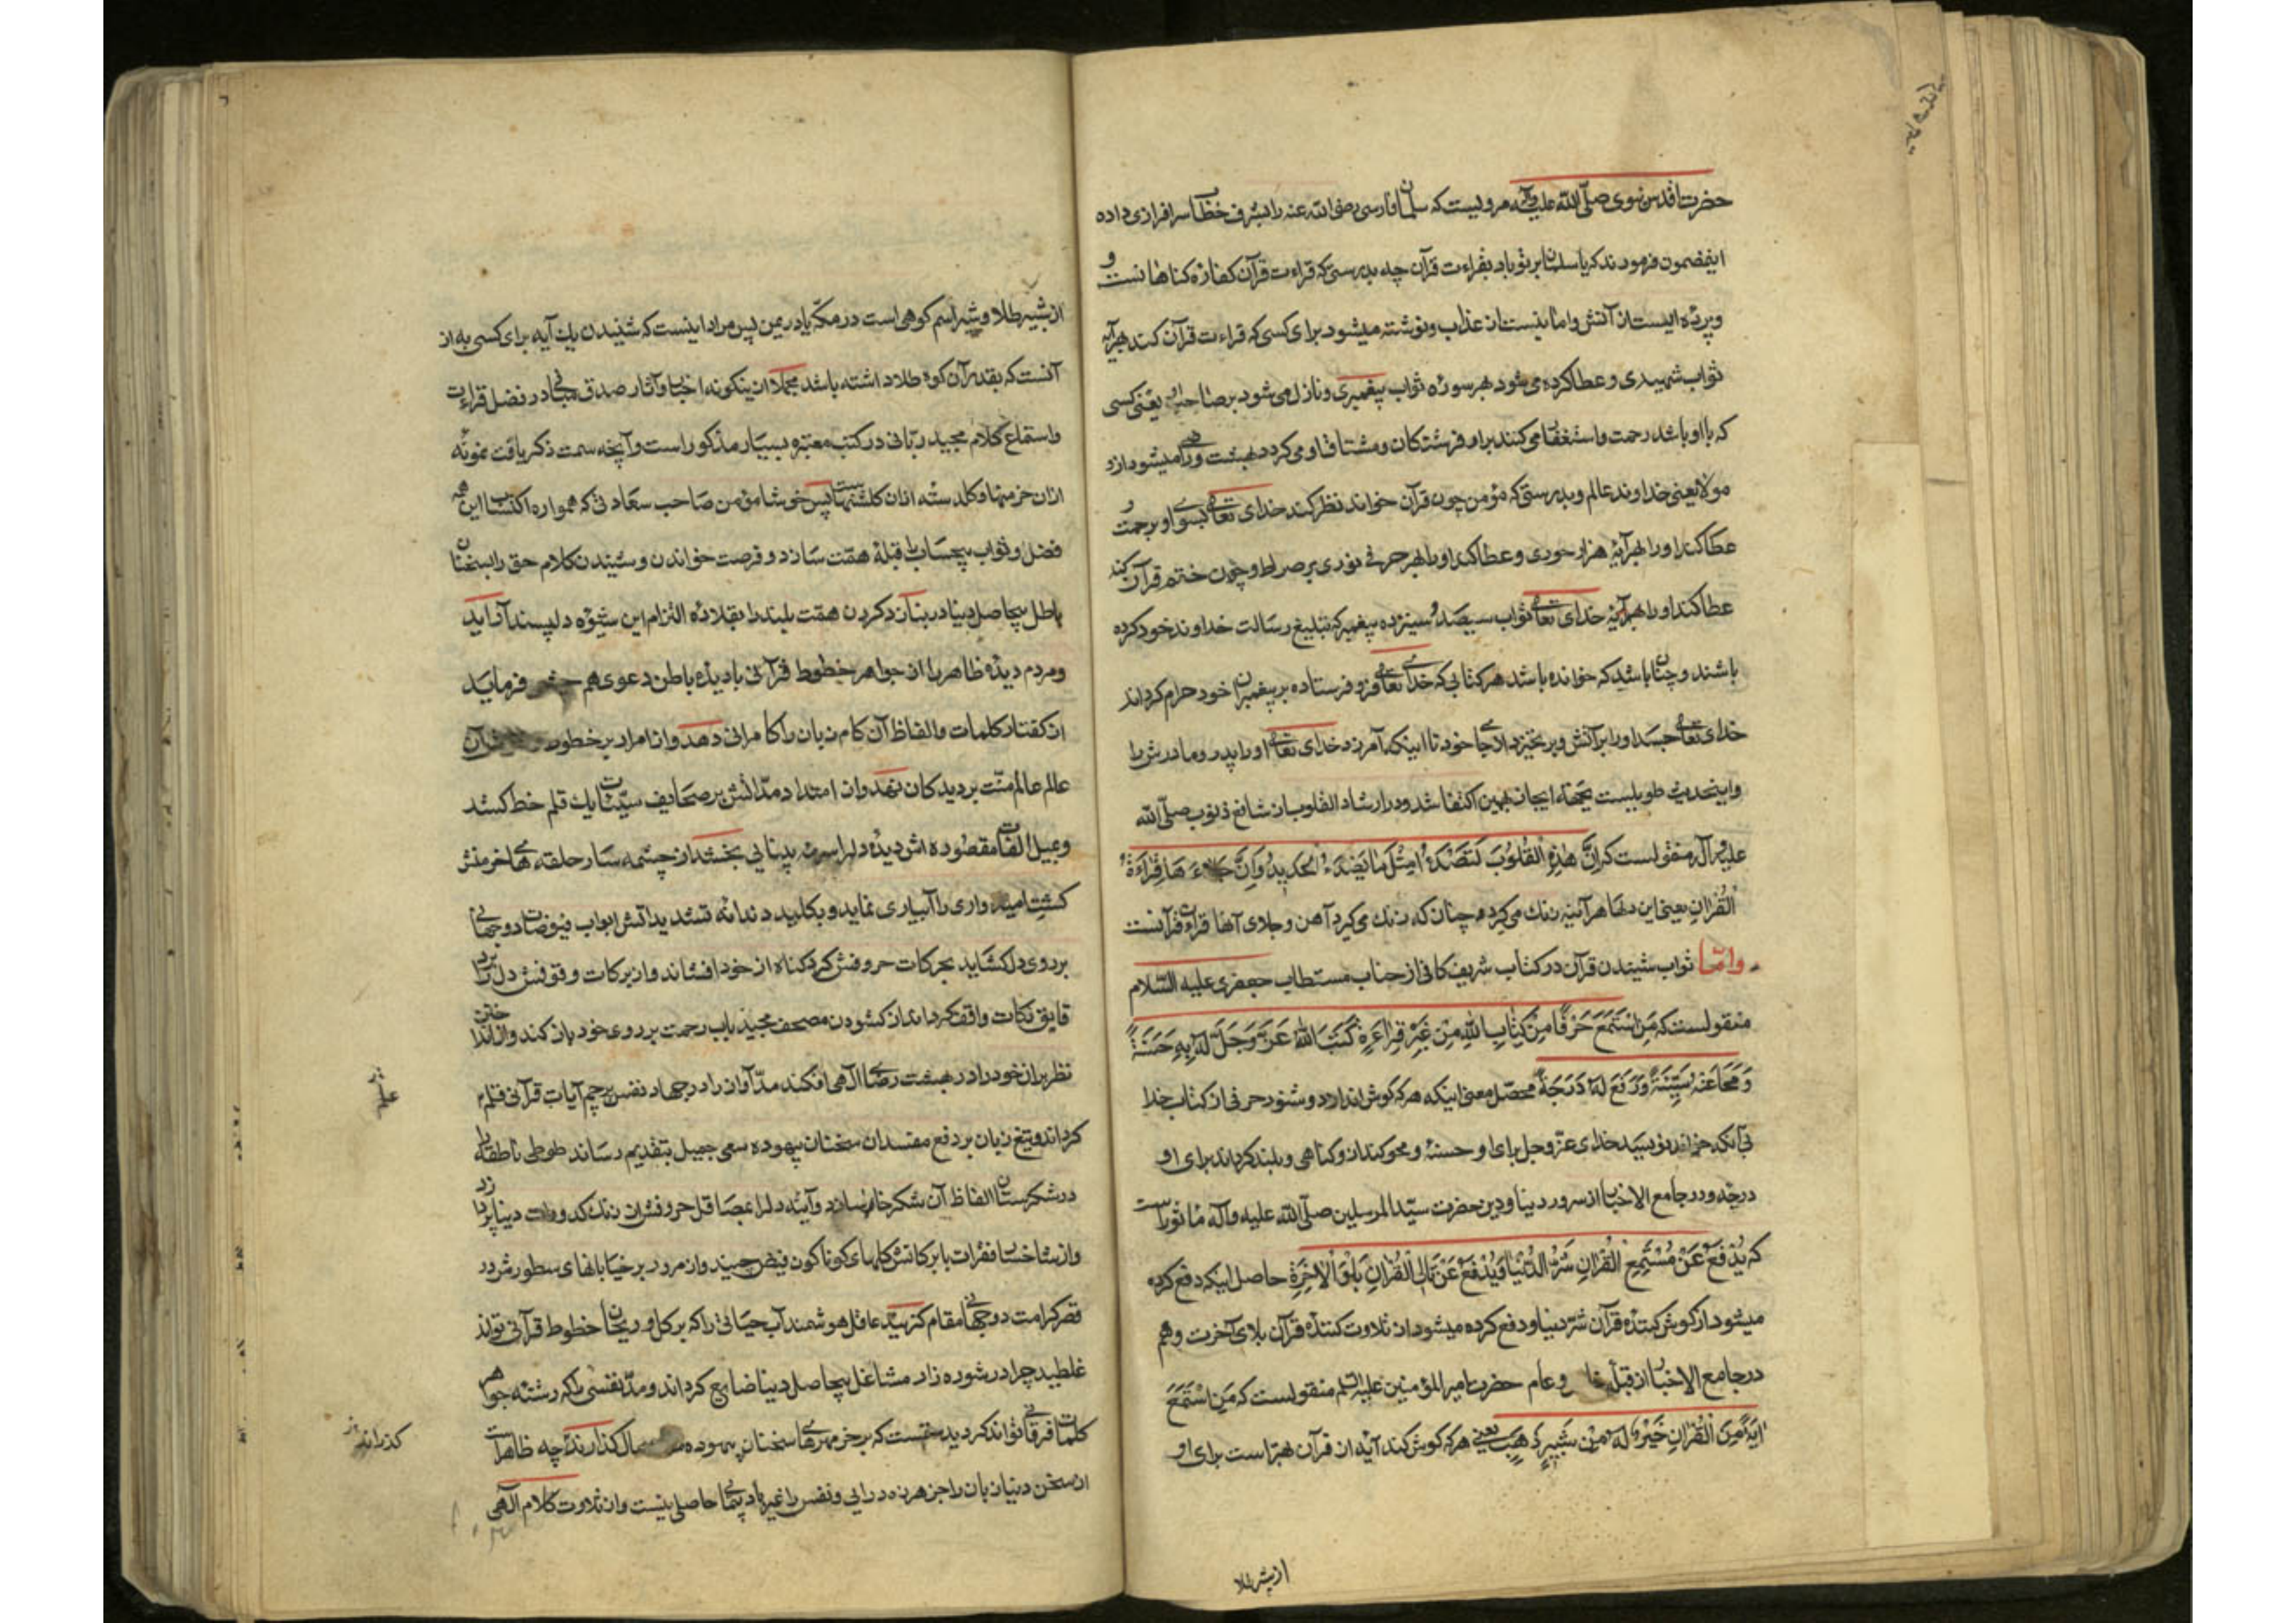 حضرت اقدس نبوی صلّی الله علیه وآله مرویست که سلمان فارسی رضی الله عنه را بشرف خطاب سرافرازی داده
اینمضمون فرمودند که یا سلمان بر تو باد بقراءت قرآن چه بدرستی که قراءت قرآن کفارهٔ کناهانست و
و پرده ایست از آتش و امانیست از عذاب و نوشته میشود برای کسی که قراءت قرآن کند بهر آیه
ثواب شهیدی و عطا کرده می شود بهر سوره ثواب پیغمبری و نازل می شود بر صاحب یعنی کسی
که با او باشد رحمت و استغفار می کنند برای او فرشتکان و مشتاق او می کردد بهشت و راضی میشود ازو
مولا یعنی خداوند عالم و بدرستی که مؤمن چون قرآن خواند نظر کند خدای تعالی بسوی او برحمت و
عطا کند او را بهر آیهٔ هزار حوری و عطا کند او را بهر حرفی نوری بر صراط و چون ختم قرآن کند
عطا کند او را خدای تعالی ثواب سیصد و سیزده پیغمبر که تبلیغ رسالت خداوند خود کرده
باشند و چنان باشد که خوانده باشد هر کتابی که خدای تعالی فرو فرستاده بر پیغمبران خود حرام کرداند
خدای تعالی جسد او را بر آتش و بر نخیزد از جای خود تا اینکه آمرزد خدای تعالی او را و پدر و مادرش را
و اینحدیث طویلیست بجهة ایجاز بهمین اکتفا شد و در ارشاد القلوب از شافع ذنوب صلّی الله
علیه وآله منقولست که اِنَّ هٰذِهِ الْقُلُوبَ لَتَصْدَءُ مِثْلَ مَا یَصْدَءُ الْحَدِیدُ وَاِنَّ جَلاءَهَا قِرَاءَةُ
الْقُرْاٰنِ یعنی این دلها هر آینه زنك می کیرد چنان که زنك می کیرد آهن و جلای آنها قراءت قرآنست
وامّا ثواب شنیدن قرآن در کتاب شریف کافی از جناب مستطاب جعفری علیه السّلام
منقولست که مَنِ اسْتَمَعَ حَرْفًا مِنْ کِتَابِ اللهِ مِنْ غَیْرِ قِرَاءَةٍ کَتَبَ اللهُ عَزَّ وَجَلَّ لَهُ بِهِ حَسَنَةً
وَمَحَا عَنْهُ سَیِّئَةً وَرَفَعَ لَهُ دَرَجَةً محصّل معنی اینکه هر که کوش اندازد و شنود حرفی از کتاب خدا
بی آنکه خواند بنویسد خدای عزّ وجل برای او حسنهٔ و محو کند از و کناهی و بلند کرداند برای او
درجهٔ و در جامع الاخبار از سرور دنیا و دین حضرت سیّد المرسلین صلّی الله علیه وآله مأثور است
که یُدْفَعُ عَنْ مُسْتَمِعِ الْقُرْاٰنِ شَرُّ الدُّنْیَا وَیُدْفَعُ عَنْ تَالِی الْقُرْاٰنِ بَلْوَی الْاٰخِرَةِ حاصل اینکه دفع کرده
میشود از کوش کنندهٔ قرآن شرّ دنیا و دفع کرده میشود از تلاوت کنندهٔ قرآن بلای آخرت و هم
در جامع الاخبار از قبلهٔ خاص و عام حضرت امیر المؤمنین علیه السّلم منقولست که مَنِ اسْتَمَعَ
اٰیَةً مِنَ الْقُرْاٰنِ خَیْرٌ لَهُ مِنْ ثَبِیرٍ ذَهَبًا یعنی هر که کوش کند آیهٔ از قرآن بهتر است برای او
از ثبیر طلا
از ثبیر طلا و ثبیر اسم کوهی است در مکّه یا در یمن پس مراد اینست که شنیدن یك آیه برای کسی به از
آنست که بقدر آن کوه طلا داشته باشد مجملا از ینکونه اخبار و آثار صدق در فضل قراءت
و استماع کلام مجید ربّانی در کتب معتبره بسیار مذکور است و آنچه سمت ذکر یافت نمونهٔ
ازان خرمنها و کلدستهٔ ازان کلشنهاست پس خوشا مؤمن صاحب سعادتی که همواره اکتساب این همه
فضل و ثواب بیحساب را قبلهٔ همّت سازد و فرصت خواندن و شنیدن کلام حق را بسخنان
باطل بیحاصل دنیا در نبازد کردن همّت بلند را بقلادهٔ التزام این شیوهٔ دلپسند آراید
و مردم دیدهٔ ظاهر را از جواهر خطوط قرآنی با دیدهٔ باطن دعوی هم چشمی فرماید
از کفتار کلمات و الفاظ آن کام زبان را کامرانی دهد و از امرار بر خطور آن
عالم عالم منّت بر دیدکان نهد و از امتداد مدّاتش بر صحایف سیّئات یك قلم خط کشد
و بمیل الفات مقصوده اش دیدهٔ دل را سرمهٔ بینایی بخشد از چشمه سار حلقه های خرمنش
کشت امیدواری را آبیاری نماید و بکلید دندانهٔ تشدیداتش ابواب فیوضات دوجهانی
بر روی دل کشاید بحرکات حروفش کرد کناه از خود افشاند و از برکات وقوفش دل را بر
قایق نکات واقف کرداند از کشودن مصحف مجید باب رحمت بر روی خود باز کند و از انداختن
نظر بران خود را در بهشت رضای الهی افکند مدّ آواز را در جهاد نفس پرچم آیات قرآنی
کرداند و تیغ زبان بر دفع مفسدان سخنان بیهوده سعی جمیل بتقدیم رساند طوطی ناطقه را
در شکرستان الفاظ آن شکر خا سازد و آینهٔ دل را بمصاقل حروفش از زنك کدورات دنیا پردازد
و از شاخسار فقرات با برکاتش کلهای کوناکون فیض چیند و از مرور بر خیابانهای سطورش در
قصر کرامت دوجهانی مقام کزیند عاقل هوشمند آب حیاتی را که بر کل و ریحان خطوط قرآنی تواند
غلطید چرا در شوره زار مشاغل بیحاصل دنیا ضایع کرداند و مدّ نفسی را که رشتهٔ جواهر
کلمات فرقانی تواند کردید که بر خرمهره های سخنان بیهوده کذارند چه ظاهر است
از سخن دنیا زبان را جز هرزه درایی و نفس را غیر باد پیمایی حاصلی نیست و از تلاوت کلام الهی